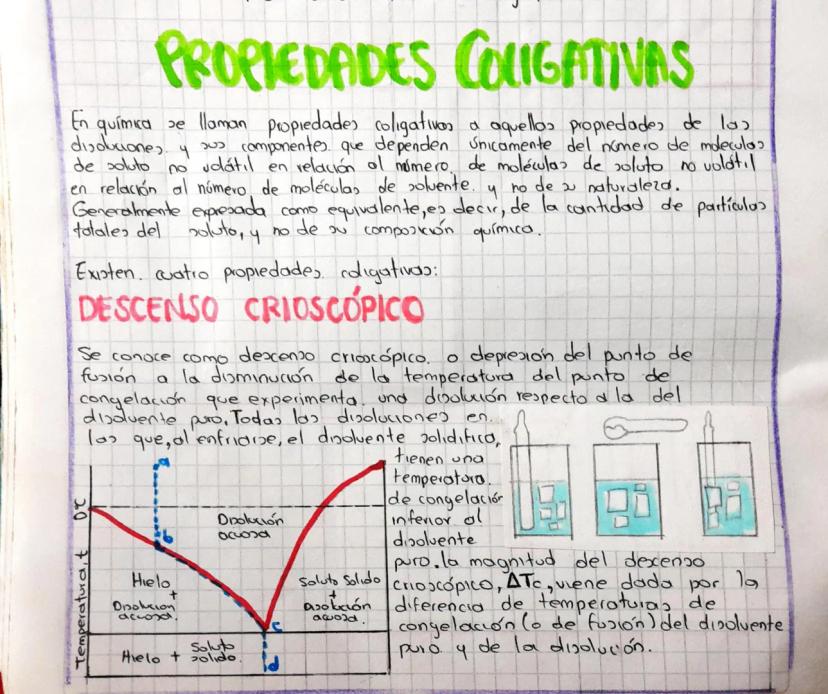 PROPIEDADES COLIGATIVAS
En química se llaman propiedades coligativas a aquellas propiedades de las
disoluciones y sus componentes que dependen únicamente del número de moléculas
de soluto no volátil en relación al número de moléculas de soluto no volátil
en relación al número de moléculas de solvente y no de su naturaleza.
Generalmente expresada como equivalente, es decir, de la cantidad de partículas
totales del soluto, y no de su composición química.
Existen cuatro propiedades coligativas:
DESCENSO CRIOSCÓPICO
Se conoce como descenso crioscópico o depresión del punto de
fusión a la disminución de la temperatura del punto de
congelación que experimenta una disolución respecto a la del
disolvente puro. Todas las disoluciones en
las que, al enfriarse, el disolvente solidifica,
tienen una
temperatura
de congelación
inferior al
disolvente
puro. la magnitud del descenso
crioscópico, ΔTc, viene dada por la
diferencia de temperaturas de
congelación (o de fusión) del disolvente
puro y de la disolución.
Temperatura, t
0°C
a
b
c
d
Disolución
acuosa
Hielo
+
Disolución
acuosa.
Soluto Solido
+
Disolución
acuosa.
Hielo + Soluto
solido.